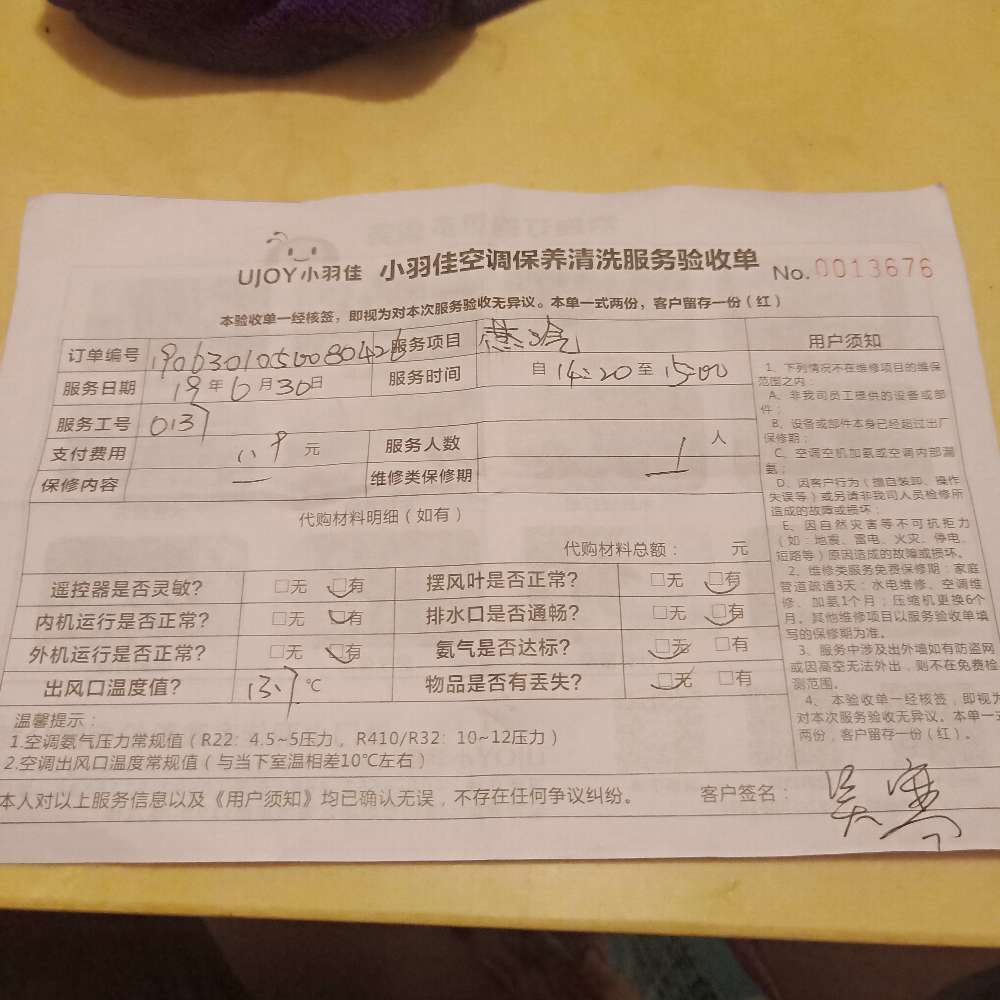 UJOY小羽佳 小羽佳空调保养清洗服务验收单 No.0013676
本验收单一经核签，即视为对本次服务验收无异议。本单一式两份，客户留存一份（红）
订单编号 服务项目
服务日期 19年6月30日 服务时间 自14:20至15:00
服务工号 0137
支付费用 元 服务人数 1人
保修内容 一 维修类保修期 一
代购材料明细（如有）
代购材料总额： 元
遥控器是否灵敏? □无 □有 摆风叶是否正常? □无 □有
内机运行是否正常? □无 □有 排水口是否通畅? □无 □有
外机运行是否正常? □无 □有 氨气是否达标? □无 □有
出风口温度值? ℃ 物品是否有丢失? □无 □有
温馨提示：
1.空调氨气压力常规值（R22：4.5~5压力，R410/R32：10~12压力）
2.空调出风口温度常规值（与当下室温相差10℃左右）
本人对以上服务信息以及《用户须知》均已确认无误，不存在任何争议纠纷。 客户签名：
用户须知
1、下列情况不在维修项目的维保
范围之内：
A、非我司员工提供的设备或部
件；
B、设备或部件本身已经超过出厂
保修期；
C、空调空机加氨或空调内部漏
氨；
D、因客户行为（擅自装卸、操作
失误等）或另请非我司人员检修所
造成的故障或损坏；
E、因自然灾害等不可抗拒力
（如：地震、雷电、火灾、停电、
短路等）原因造成的故障或损坏。
2、维修类服务免费保修期：家庭
管道疏通3天；水电维修、空调维
修、加氨1个月；压缩机更换6个
月。其他维修项目以服务验收单填
写的保修期为准。
3、服务中涉及出外墙如有防盗网
或因高空无法外出，则不在免费检
测范围。
4、本验收单一经核签，即视为
对本次服务验收无异议。本单一式
两份，客户留存一份（红）。